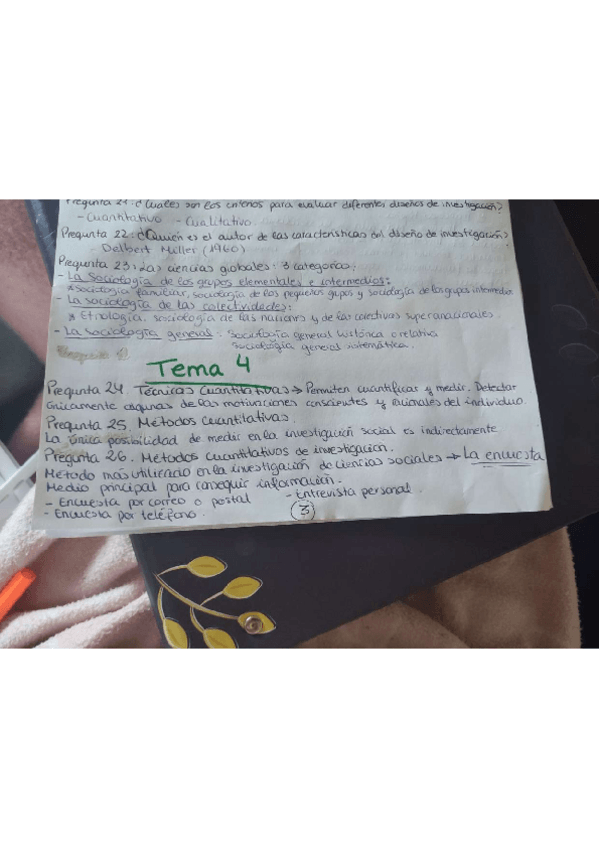 Pregunta 21: ¿Cuales son los criterios para evaluar diferentes diseños de investigación?
- Cuantitativo - Cualitativo.
Pregunta 22: ¿Quién es el autor de las características del diseño de investigación?
- Delbert Miller (1960)
Pregunta 23: Las ciencias globales: 3 categorías:
- La Sociología de los grupos elementales e intermedios:
* Sociología familiar, sociología de los pequeños grupos y sociología de los grupos intermedios
- La sociología de las colectividades:
* Etnología, sociología de las naciones y de las colectivas supernacionales.
- La sociología general: Sociología general histórica o relativa
sociología general sistemática.
Tema 4
Pregunta 24. Técnicas Cuantitativas → Permiten cuantificar y medir. Detectar
únicamente algunas de las motivaciones conscientes y racionales del individuo.
Pregunta 25. Métodos Cuantitativos.
La única posibilidad de medir en la investigación social es indirectamente
Pregunta 26. Métodos cuantitativos de investigación.
Método más utilizado en la investigación de ciencias sociales → La encuesta
Medio principal para conseguir información.
- Encuesta por correo o postal - Entrevista personal.
- Encuesta por teléfono.
3